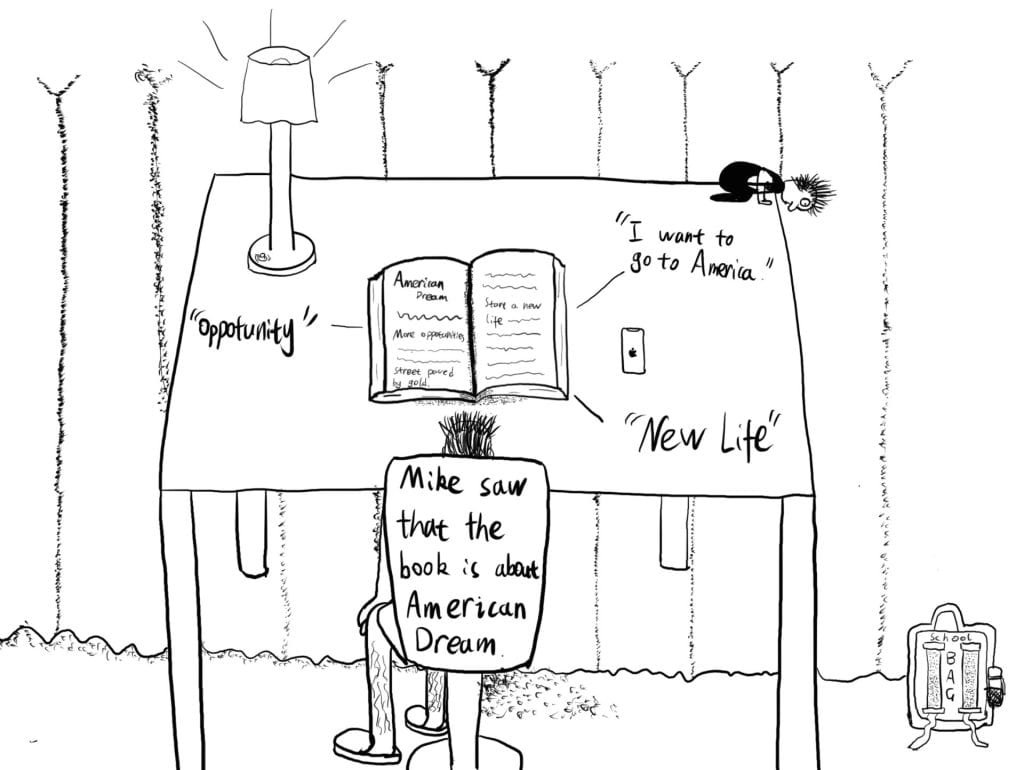 "I want to
go to America."
American
Dream
More oppotunities
street paved
by gold.
Start a new
life
"Oppotunity"
"New Life"
Mike saw
that the
book is about
American
Dream.
School
BAG